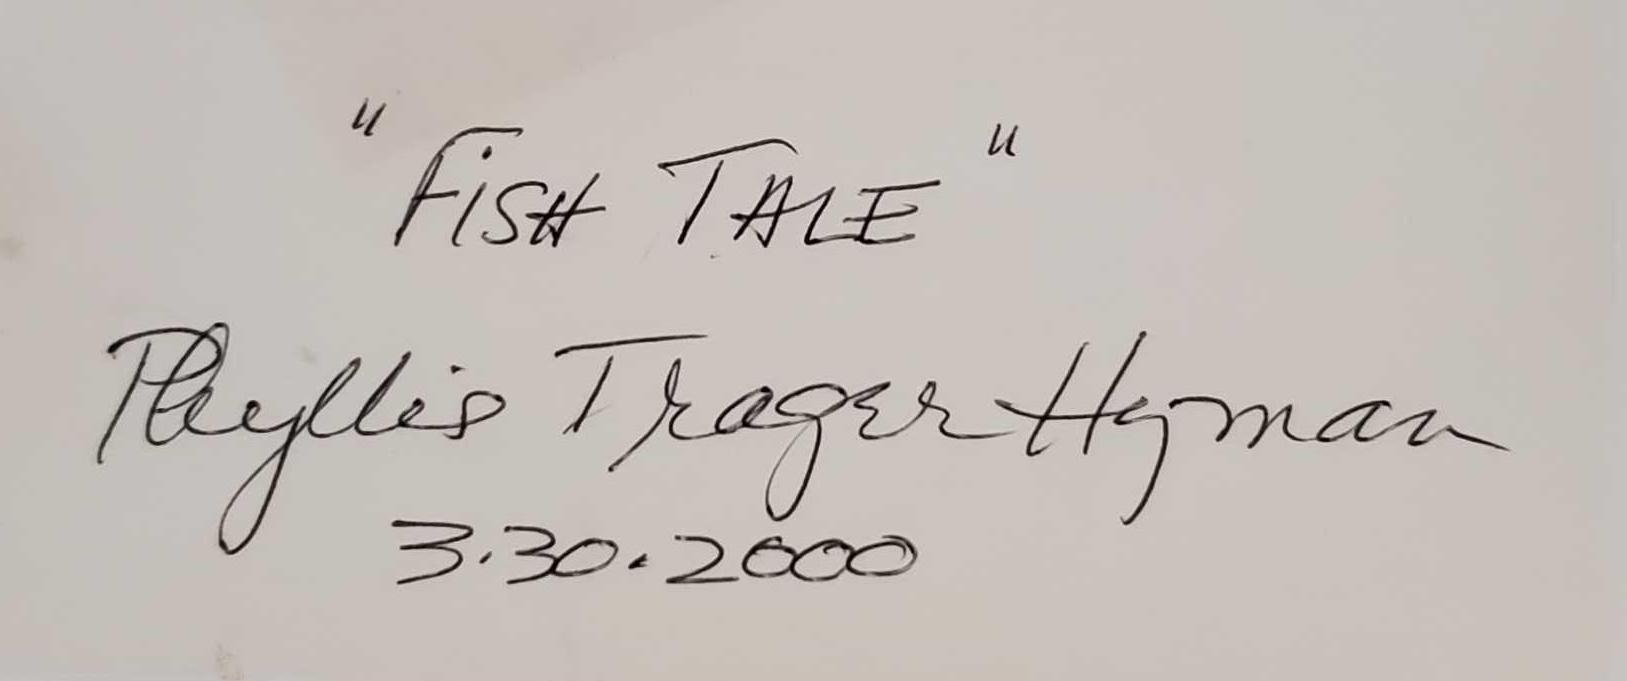 "FiSH TALE"
Phyllis Trager Hyman
3.30.2000